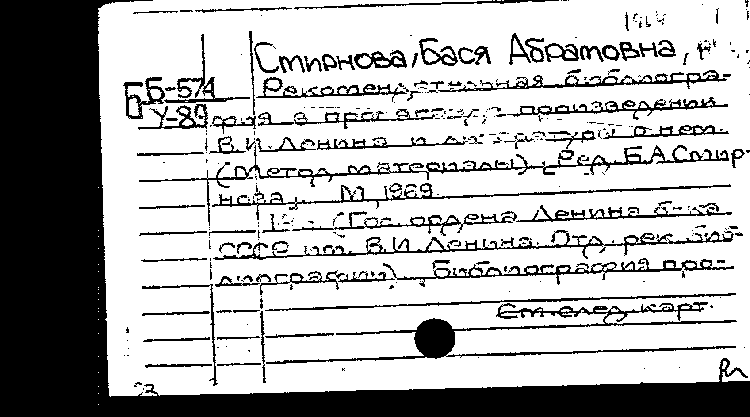 1969
Смирнова, Бася Абрамовна,
Б Б-574
У-89
Рекомендательная библиогра-
фия в пропаганде произведений
В.И. Ленина и литературы о нем.
(Метод. материалы). Ред. Б.А. Смир-
нова. М., 1969.
(Гос. ордена Ленина б-ка
СССР им. В.И. Ленина. Отд. рек. биб-
лиографии). Библиография про-
См. след. карт.